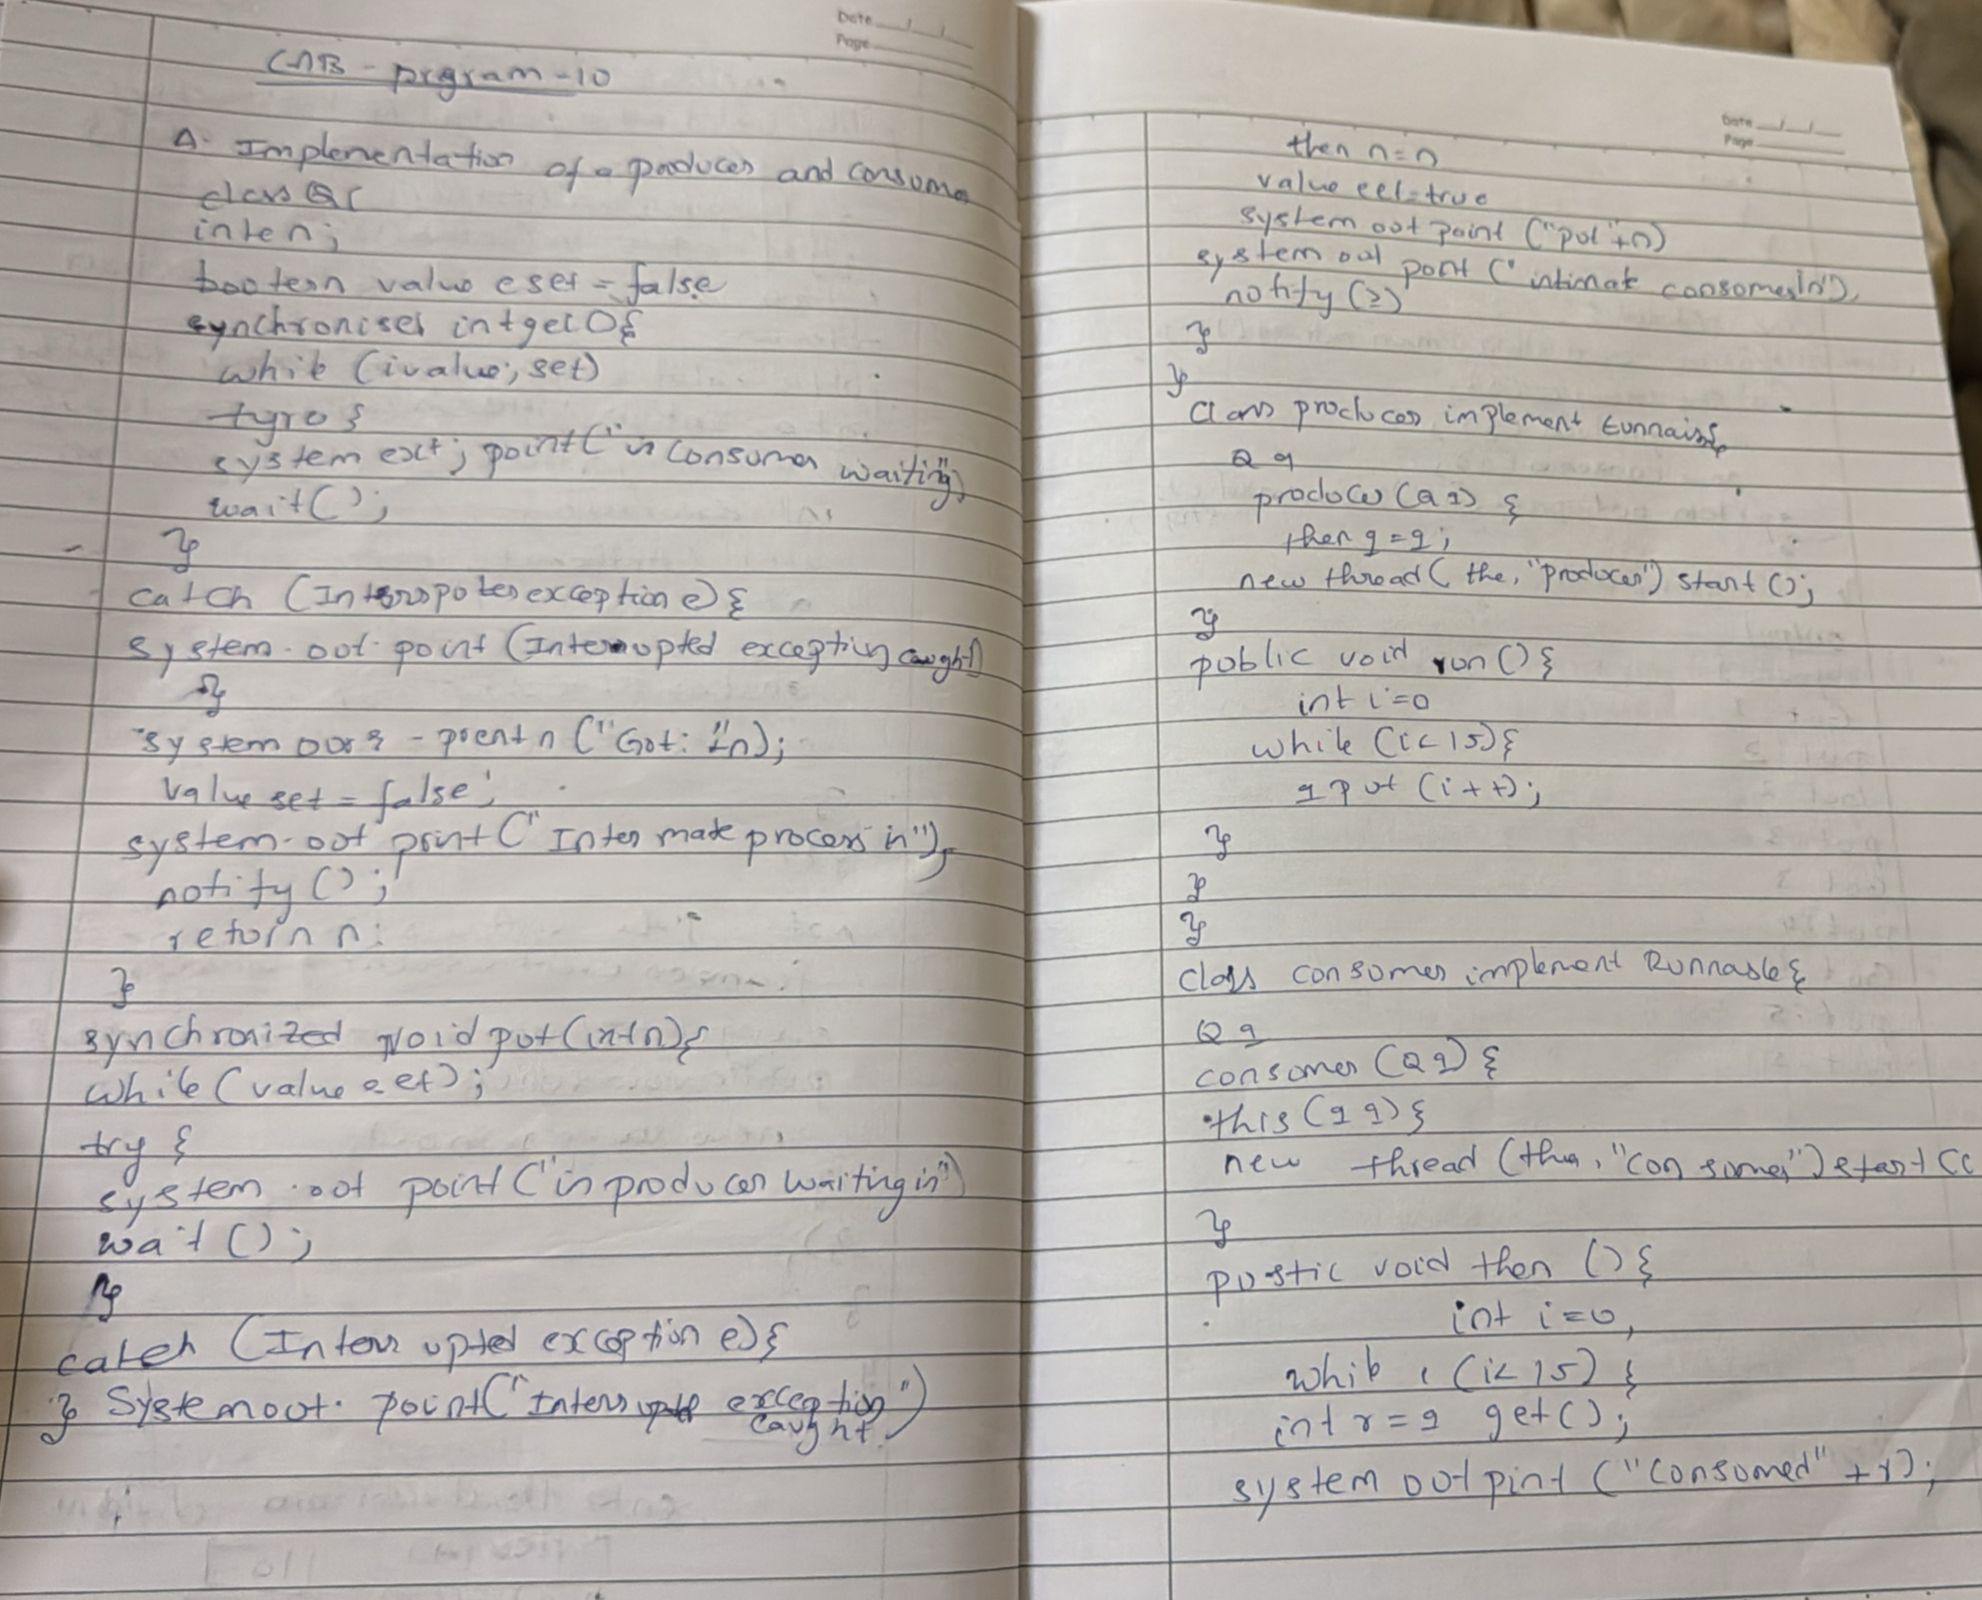 Date
Page
LAB - prgram - 10
A. Implementation of a producer and consume
class Q{
inten;
bootean value eset = false
synchronises intget(){
while (ivalue; set)
tyro {
system oxt; point("in consumer waiting");
wait();
}
catch (Interrspotes exception e) {
system. oot. point (Interrupted excepting caught)
}
system oors - prentn ("Got: "+n);
value set = false;
system. oot print (" Inter mate process in");
notify ();
return n;
}
synchronized void put (int n){
while (value eet);
try {
system. oot point ("in producer waiting in")
wait ();
}
catch (Interr upted exception e) {
} System oot. point(" Interrupted exception")
caught
Date
Page
then n=n
value eel=true
system oot point ("put"+n)
system out pont (" intimate consomer\n"),
notify (2)
}
}
class producer implement tunnais{
Q q
producer (Q q) {
then q = q;
new thread ( the, "producer") start ();
}
public void run () {
int i=0
while (i<15){
q put (i++);
}
}
}
class consomer implement Runnable {
Q q
consomer (Q q) {
this (q q) {
new thread (the, "con somer") start ((
}
pustic void then () {
int i=0,
while ( (i<15) {
int r = q get ();
system oot pint ("consomed" +r);